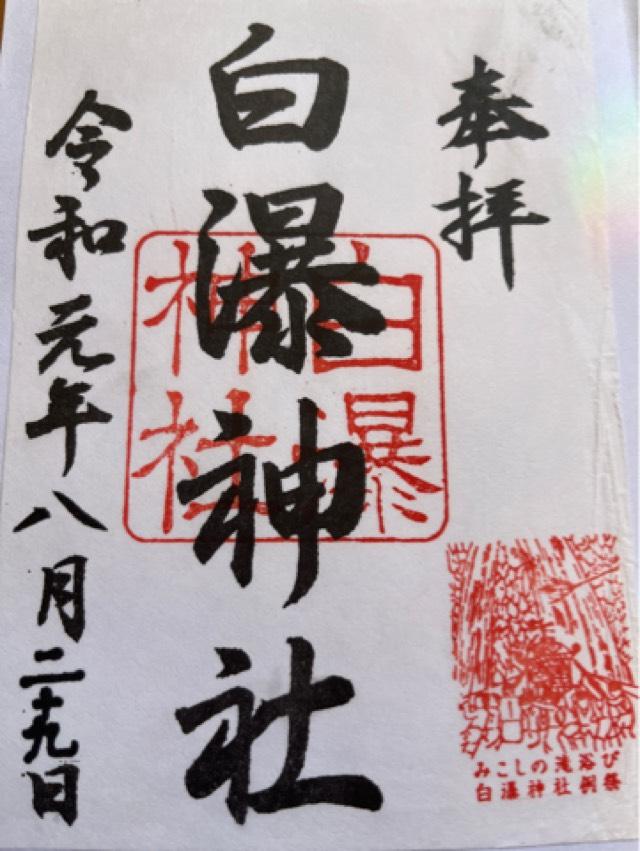 奉拝
白瀑神社
白瀑
神社
令和元年八月二十九日
みこしの滝浴び
白瀑神社例祭